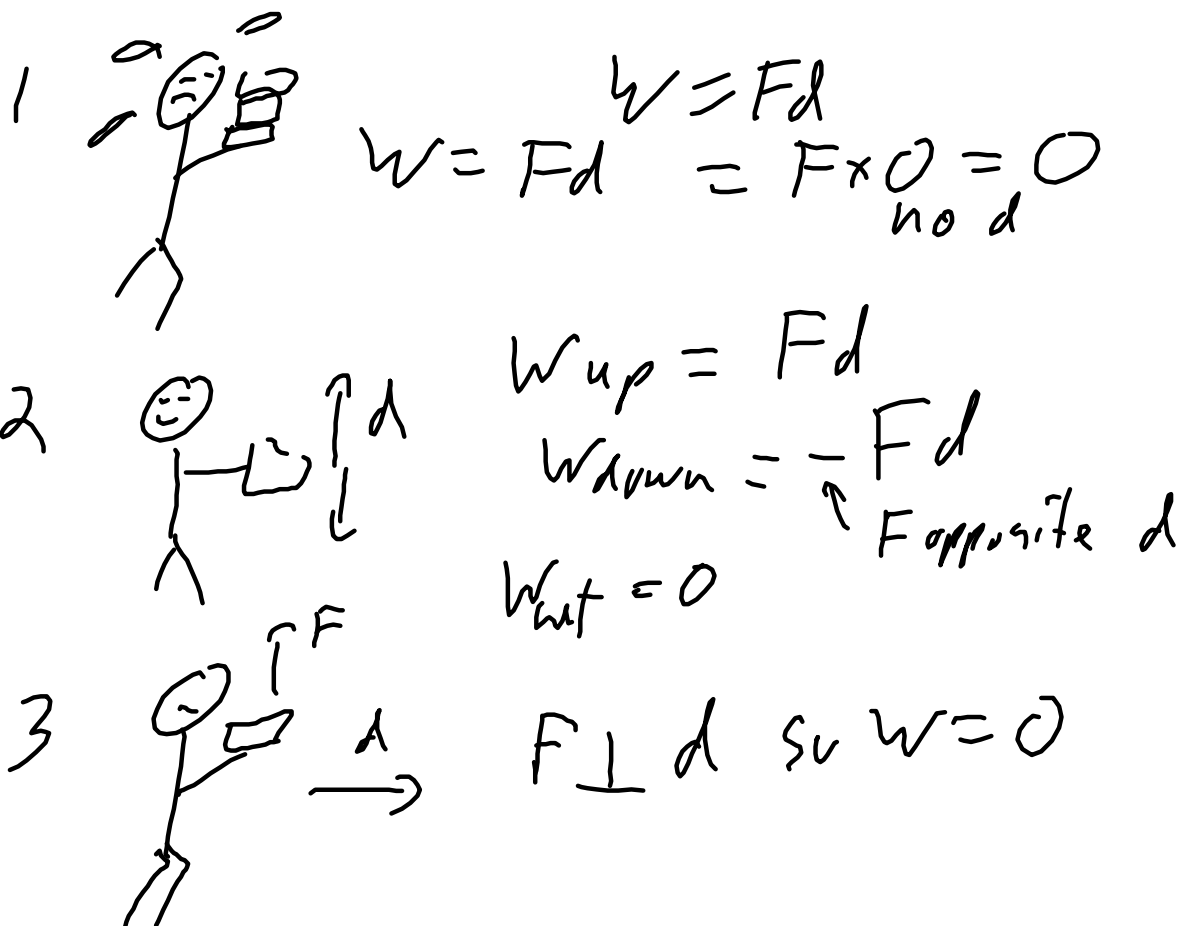 1
W = Fd
W = Fd = F x 0 = 0
no d
2
d
W up = Fd
W down = - Fd
F opposite d
W net = 0
3
F
d
F ⊥ d so W = 0